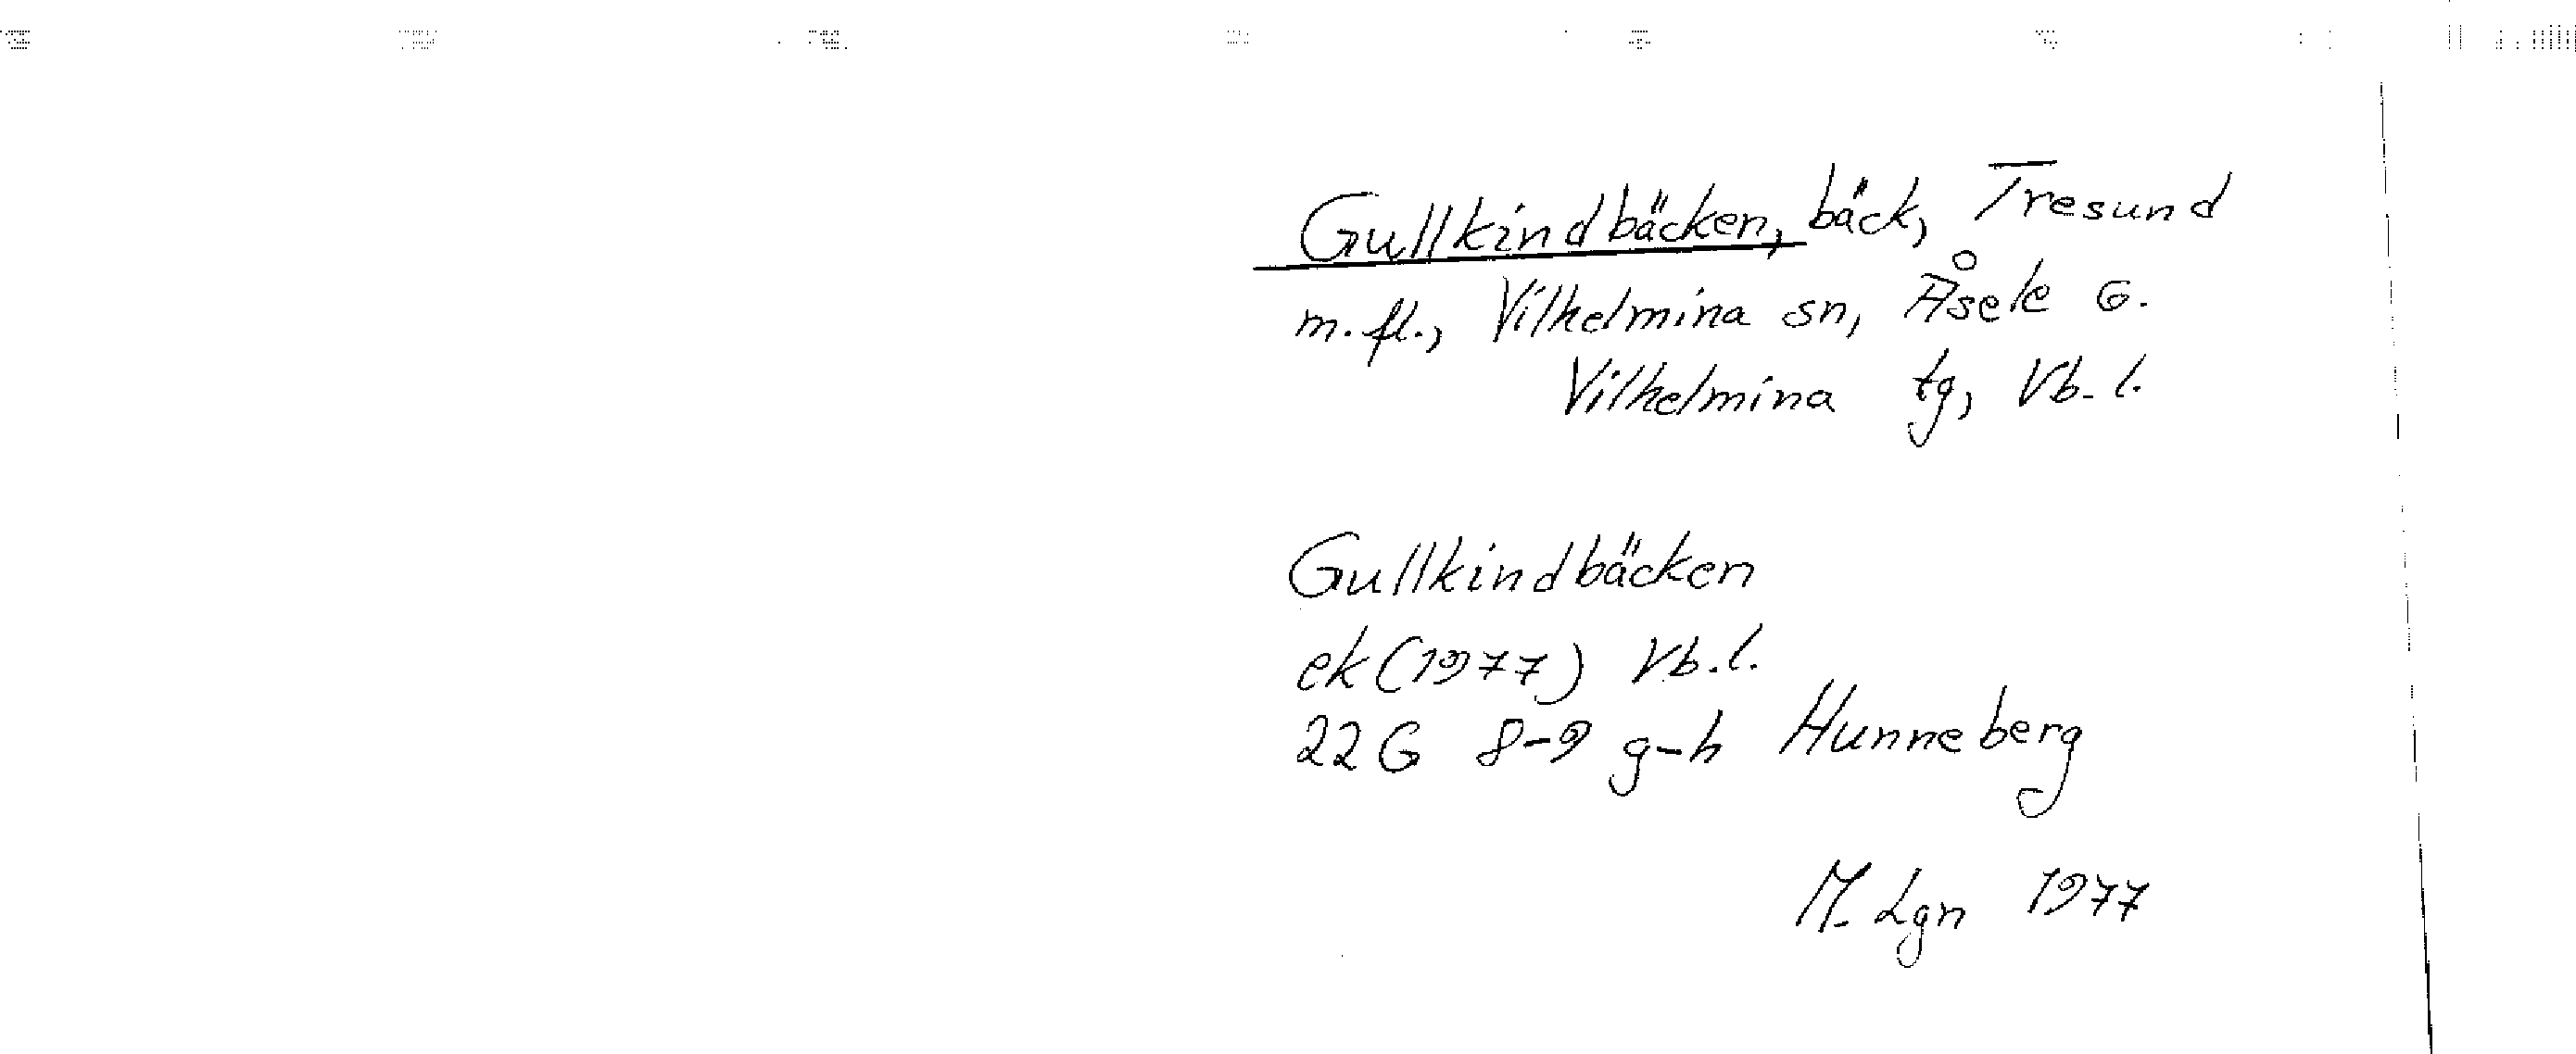 Gullkindbäcken, bäck, Tresund
m.fl., Vilhelmina sn, Åsele G.
Vilhelmina tg, Vb. l.
Gullkindbäcken
ek (1977) Vb. l.
22 G 8-9 g-h Hunneberg
M. Lgn 1977